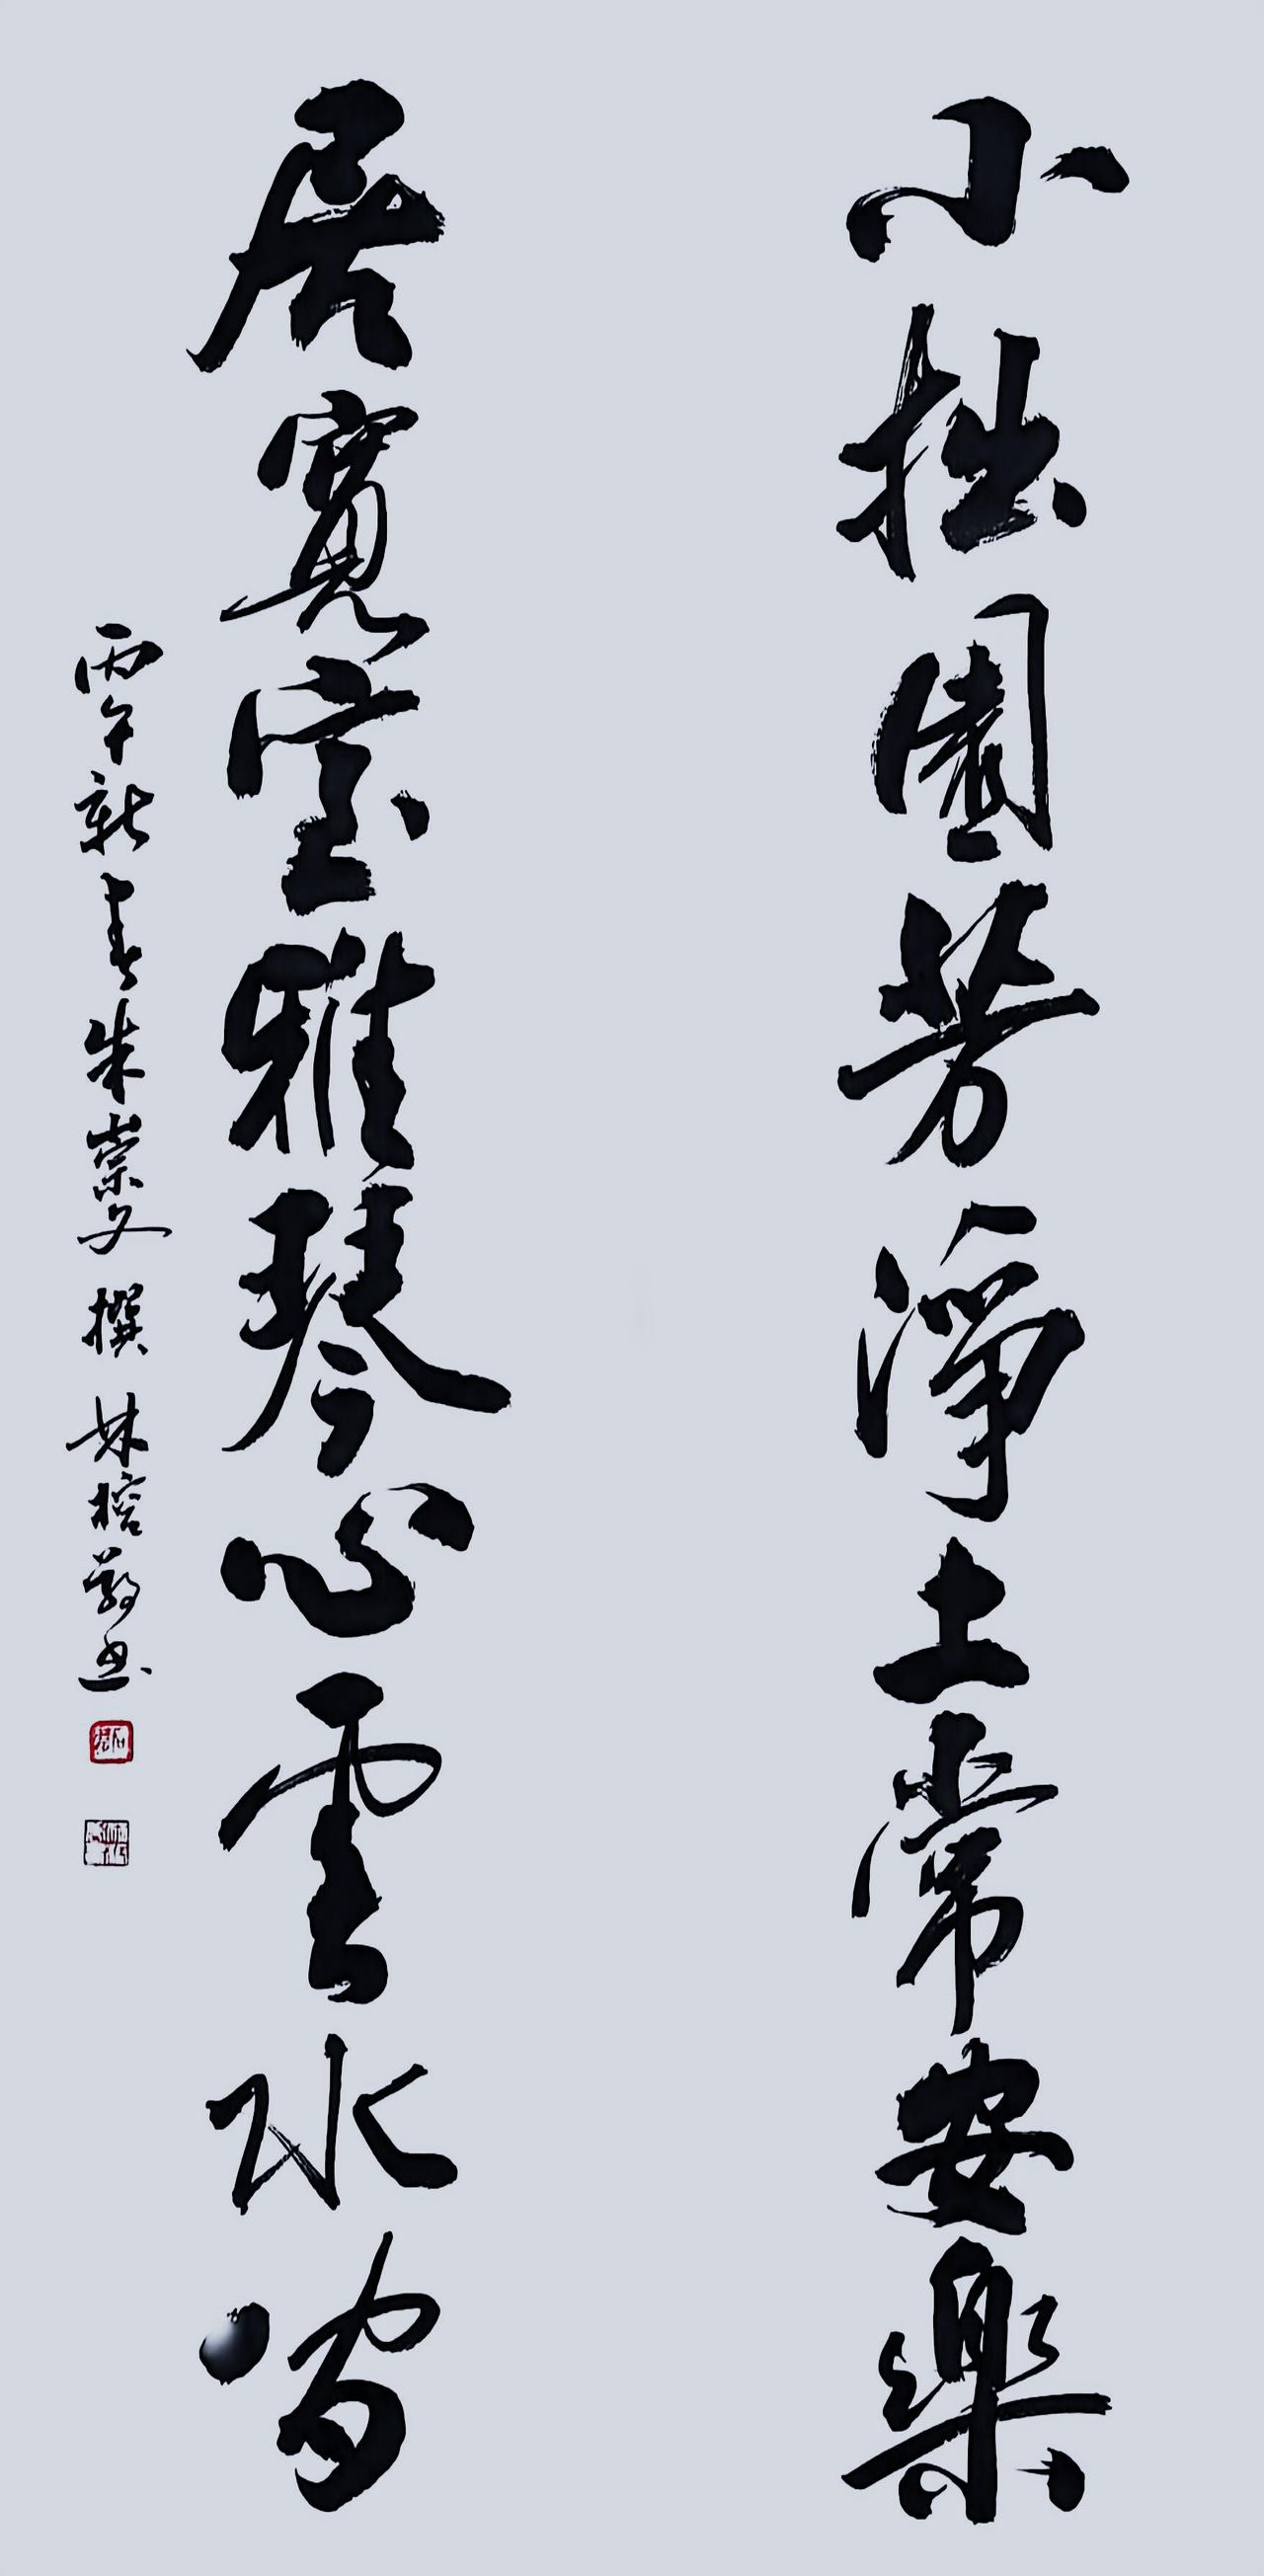 小拙園芳淨土常安樂
居寬室雅琴心雲水
丙午新春朱崇文撰 林榕敬书